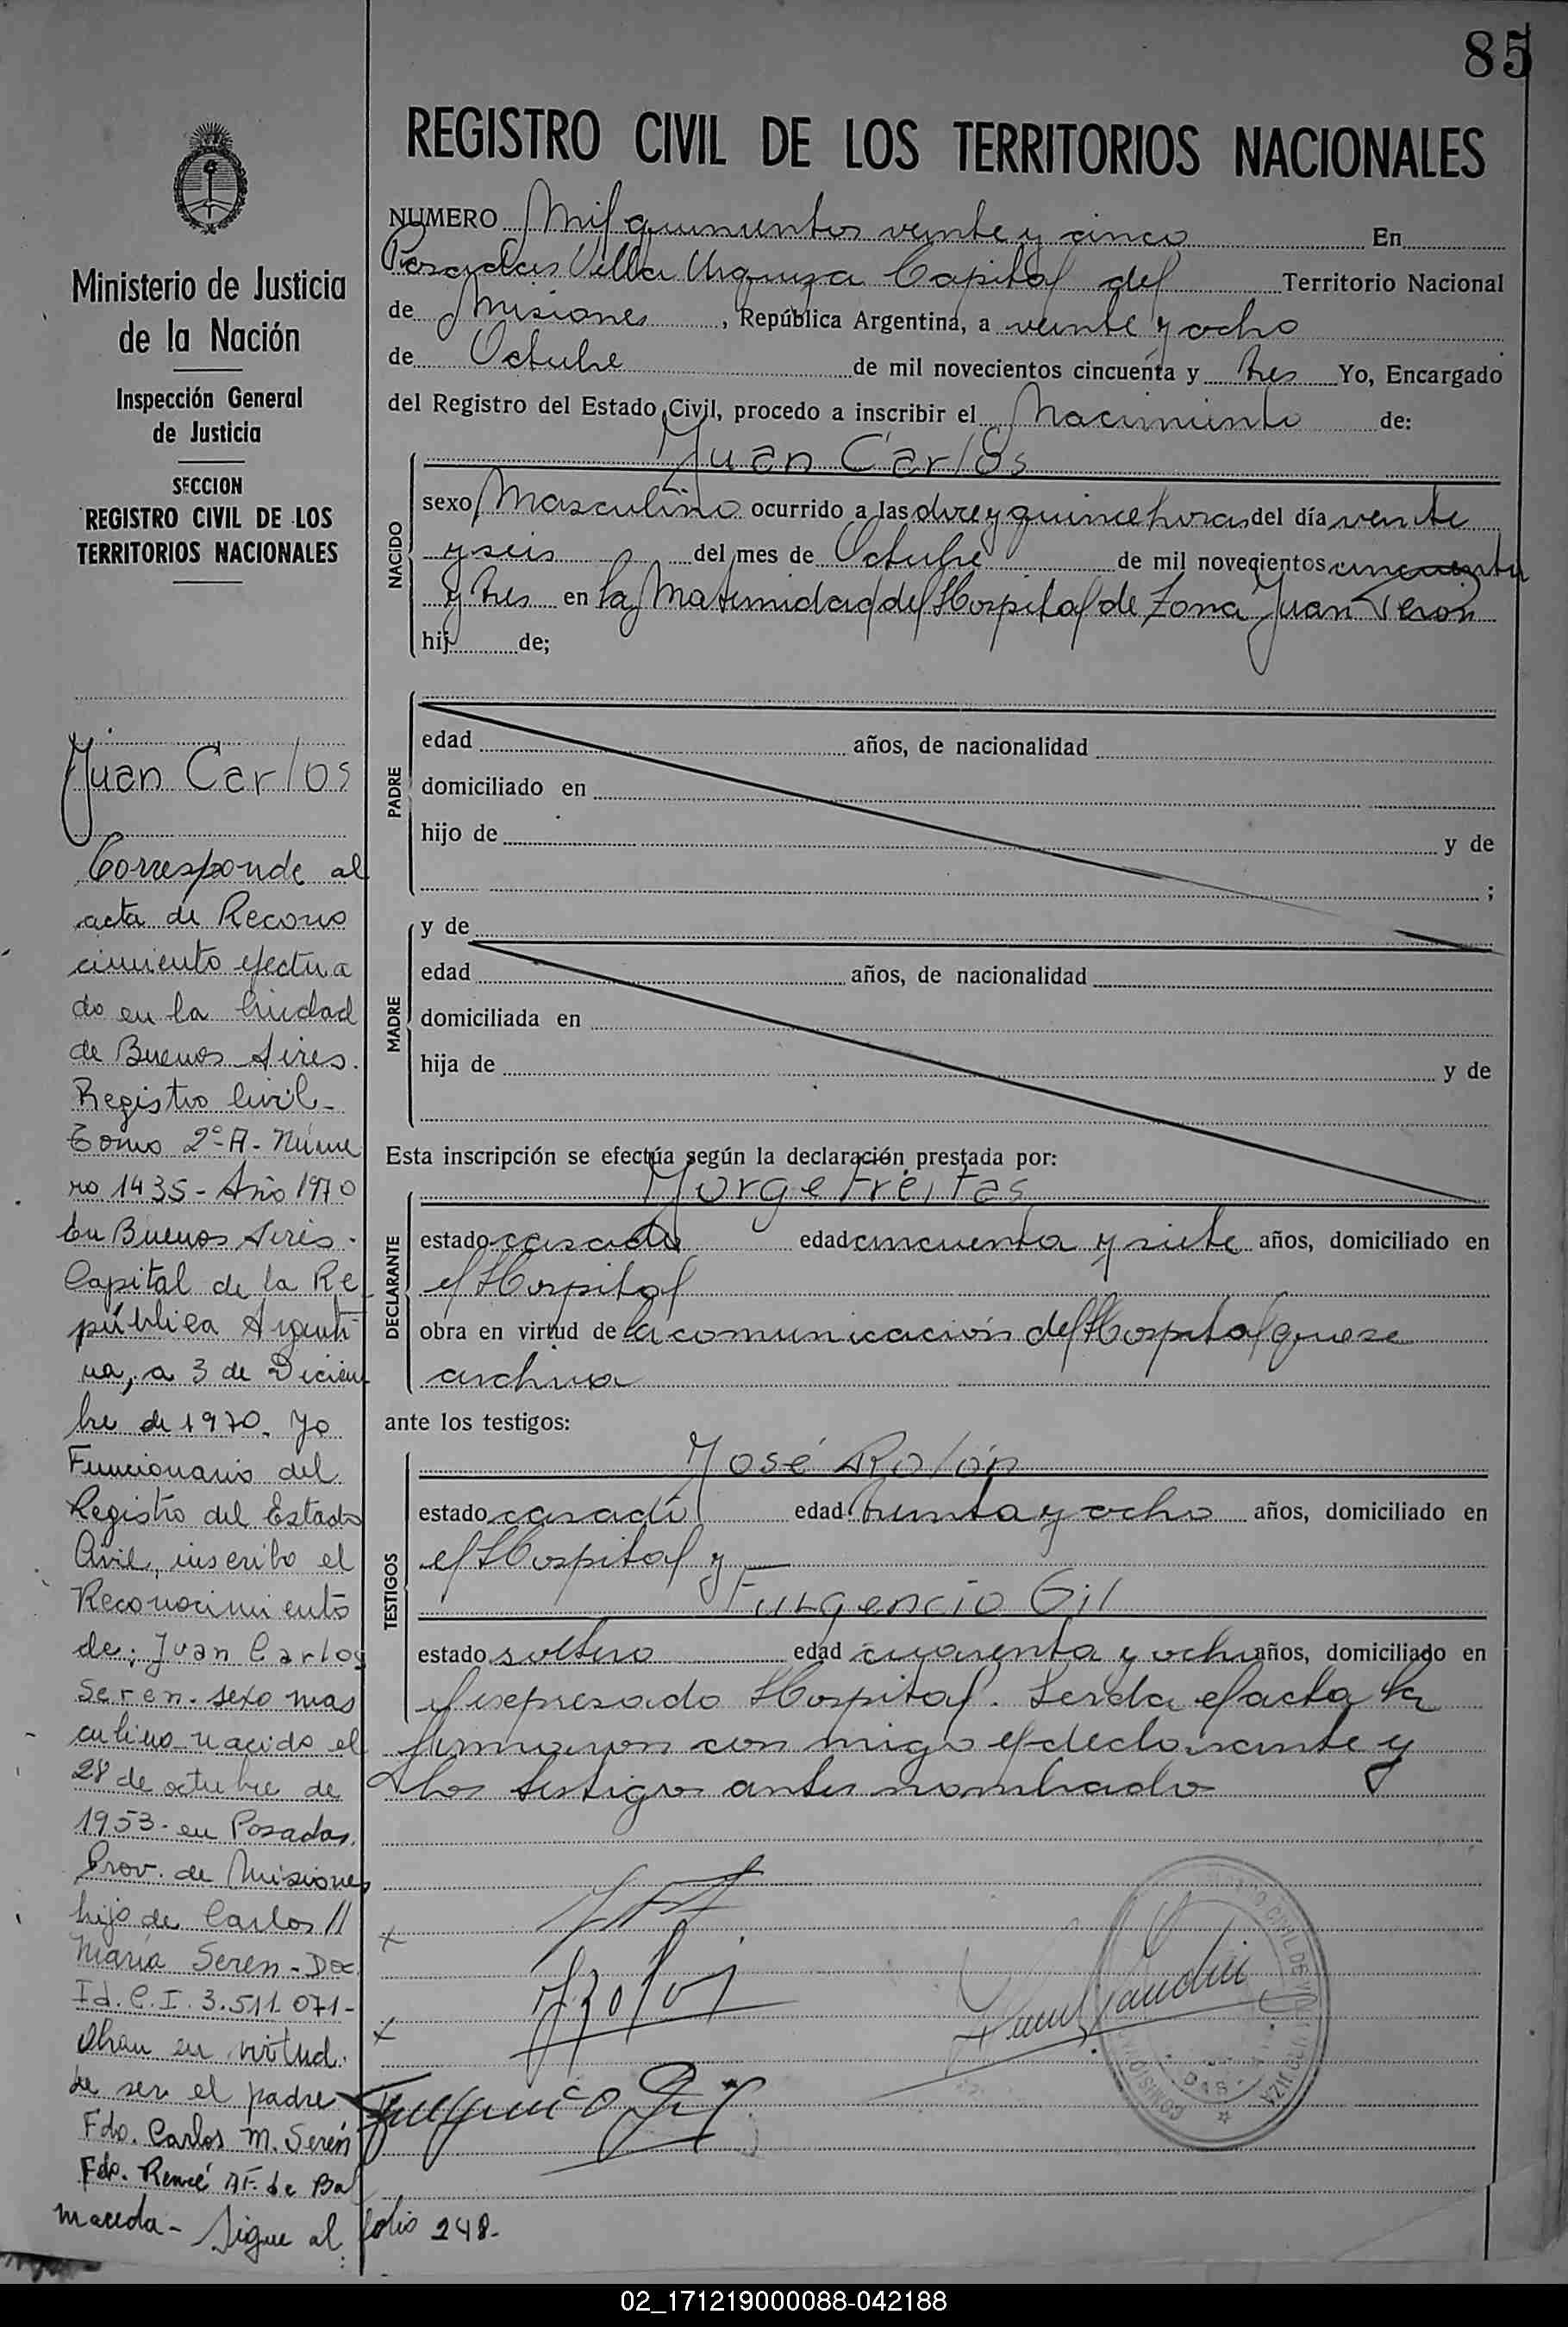 85
REGISTRO CIVIL DE LOS TERRITORIOS NACIONALES
NUMERO Mil quinientos veinte y cinco En
Posadas Villa Urquiza Capital del Territorio Nacional
de Misiones, República Argentina, a veinte y ocho
de Octubre de mil novecientos cincuenta y tres Yo, Encargado
del Registro del Estado Civil, procedo a inscribir el Nacimiento de:
Juan Carlos
NACIDO
sexo Masculino ocurrido a las doce y quince horas del día veinte
y seis del mes de Octubre de mil novecientos cincuenta
y tres en la Maternidad del Hospital de Zona Juan Perón
hij de;
PADRE
edad años, de nacionalidad
domiciliado en
hijo de y de
;
MADRE
y de
edad años, de nacionalidad
domiciliada en
hija de y de
Esta inscripción se efectúa según la declaración prestada por:
Jorge Freitas
DECLARANTE
estado casado edad cincuenta y siete años, domiciliado en
el Hospital
obra en virtud de la comunicación del Hospital que se
archiva
ante los testigos:
José Rolón
TESTIGOS
estado casado edad treinta y ocho años, domiciliado en
el Hospital y
Fulgencio Gil
estado soltero edad cuarenta y ocho años, domiciliado en
el expresado Hospital. Leida el acta la
firmaron con migo el declarante y
los testigos antes nombrado
Fulgencio Gil
Ministerio de Justicia
de la Nación
Inspección General
de Justicia
SECCION
REGISTRO CIVIL DE LOS
TERRITORIOS NACIONALES
Juan Carlos
Corresponde al
acta de Recono
cimiento efectua
do en la Ciudad
de Buenos Aires.
Registro Civil-
Tomo 2º A- Núme
ro 1435- Año 1970
En Buenos Aires.
Capital de la Re
pública Argenti
na, a 3 de Diciem
bre de 1970. Yo
Funcionario del
Registro del Estado
Civil, inscribo el
Reconocimiento
de; Juan Carlos
Seren. sexo mas
culino nacido el
28 de octubre de
1953- en Posadas.
Prov. de Misiones
hijo de Carlos //
María Seren - Doc.
Id. C.I. 3.511.071-
Obran en virtud.
de ser el padre
Fdo. Carlos M. Serén
Fdo. Reneé AF. de Bal
maceda- Sigue al folio 248-
02_171219000088-042188